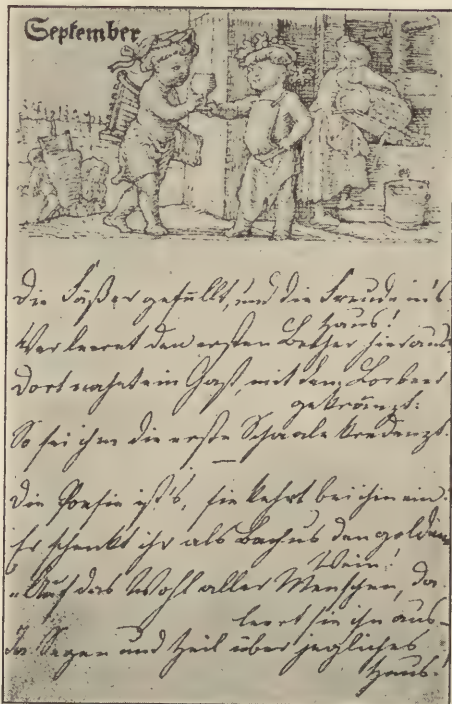 September
Die Fäßer gefüllt, und die Freude in's
Haus!
Wer leeret den ersten Becher hieraus?
Dort nahet ein Gast, mit dem Lorbeer
gekränzt:
So sei ihm die erste Schaale kredenzt.
Die Poesie ist's, sie kehrt bei ihm ein:
Er schenkt ihr als Bachus den goldnen
Wein!
"Auf das Wohl aller Menschen, da
leert sie ihn aus–
Segen und Heil über jegliches
Haus!